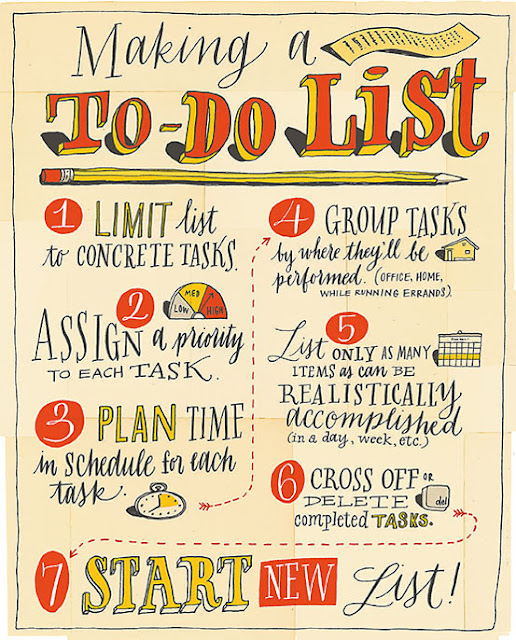 Making a
TO-DO LIST
1 LIMIT list
to CONCRETE TASKS.
2
LOW MED HIGH
ASSIGN a priority
TO EACH TASK.
3 PLAN TIME
in schedule for each
task.
4 GROUP TASKS
by where they'll be
performed. (OFFICE, HOME,
WHILE RUNNING ERRANDS).
5
List ONLY AS MANY
ITEMS as can BE
REALISTICALLY
accomplished
(in a day, week, etc.)
6 CROSS OFF OR
DELETE del
completed TASKS.
7 START NEW List!